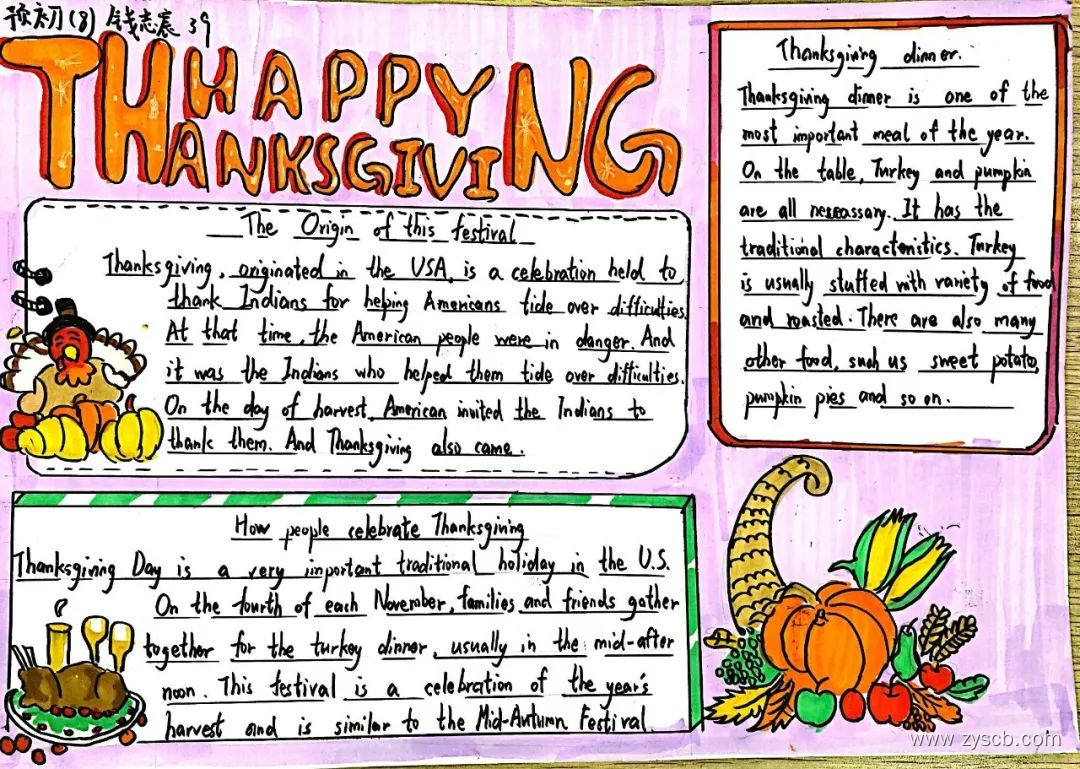 预初(8) 钱志宸 39
HAPPY
THANKSGIVING
The Origin of this festival
Thanksgiving, originated in the USA, is a celebration held to
thank Indians for helping Americans tide over difficulties.
At that time, the American people were in danger. And
it was the Indians who helped them tide over difficulties.
On the day of harvest, American invited the Indians to
thank them. And Thanksgiving also came.
How people celebrate Thanksgiving
Thanksgiving Day is a very important traditional holiday in the U.S.
On the fourth of each November, families, and friends gather
together for the turkey dinner, usually in the mid-after
noon. This festival is a celebration of the year's
harvest and is similar to the Mid-Autumn Festival.
Thanksgiving dinner.
Thanksgiving dinner is one of the
most important meal of the year.
On the table, Turkey and pumpkin
are all nesseassary. It has the
traditional characteristics. Turkey
is usually stuffed with variety of food
and roasted. There are also many
other food, such us sweet potato,
pumpkin pies and so on.
www.zyscb.com